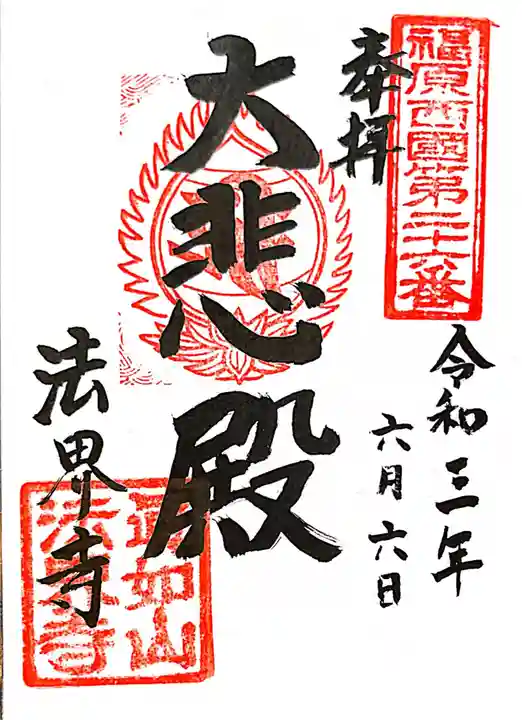 福原西國第二十六番
奉拝
令和三年
六月六日
大悲殿
法界寺
如山
法界寺